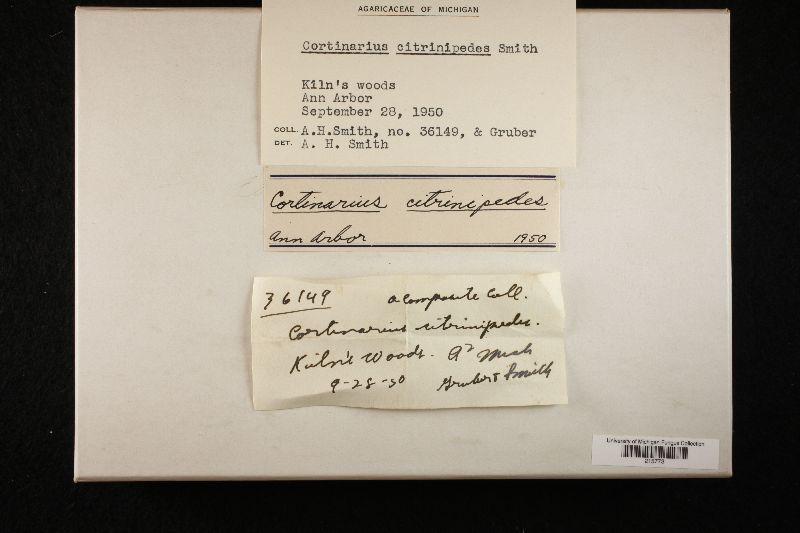 AGARICACEAE OF MICHIGAN
Cortinarius citrinipedes Smith
Kiln's woods
Ann Arbor
September 28, 1950
COLL. A.H.Smith, no. 36149, & Gruber
DET. A. H. Smith
Cortinarius citrinipedes
Ann Arbor 1950
36149 a composite Coll.
Cortinarius citrinipedes.
Kiln's Woods. A² Mich
9-28-50 Gruber & Smith
University of Michigan Fungus Collection
215773